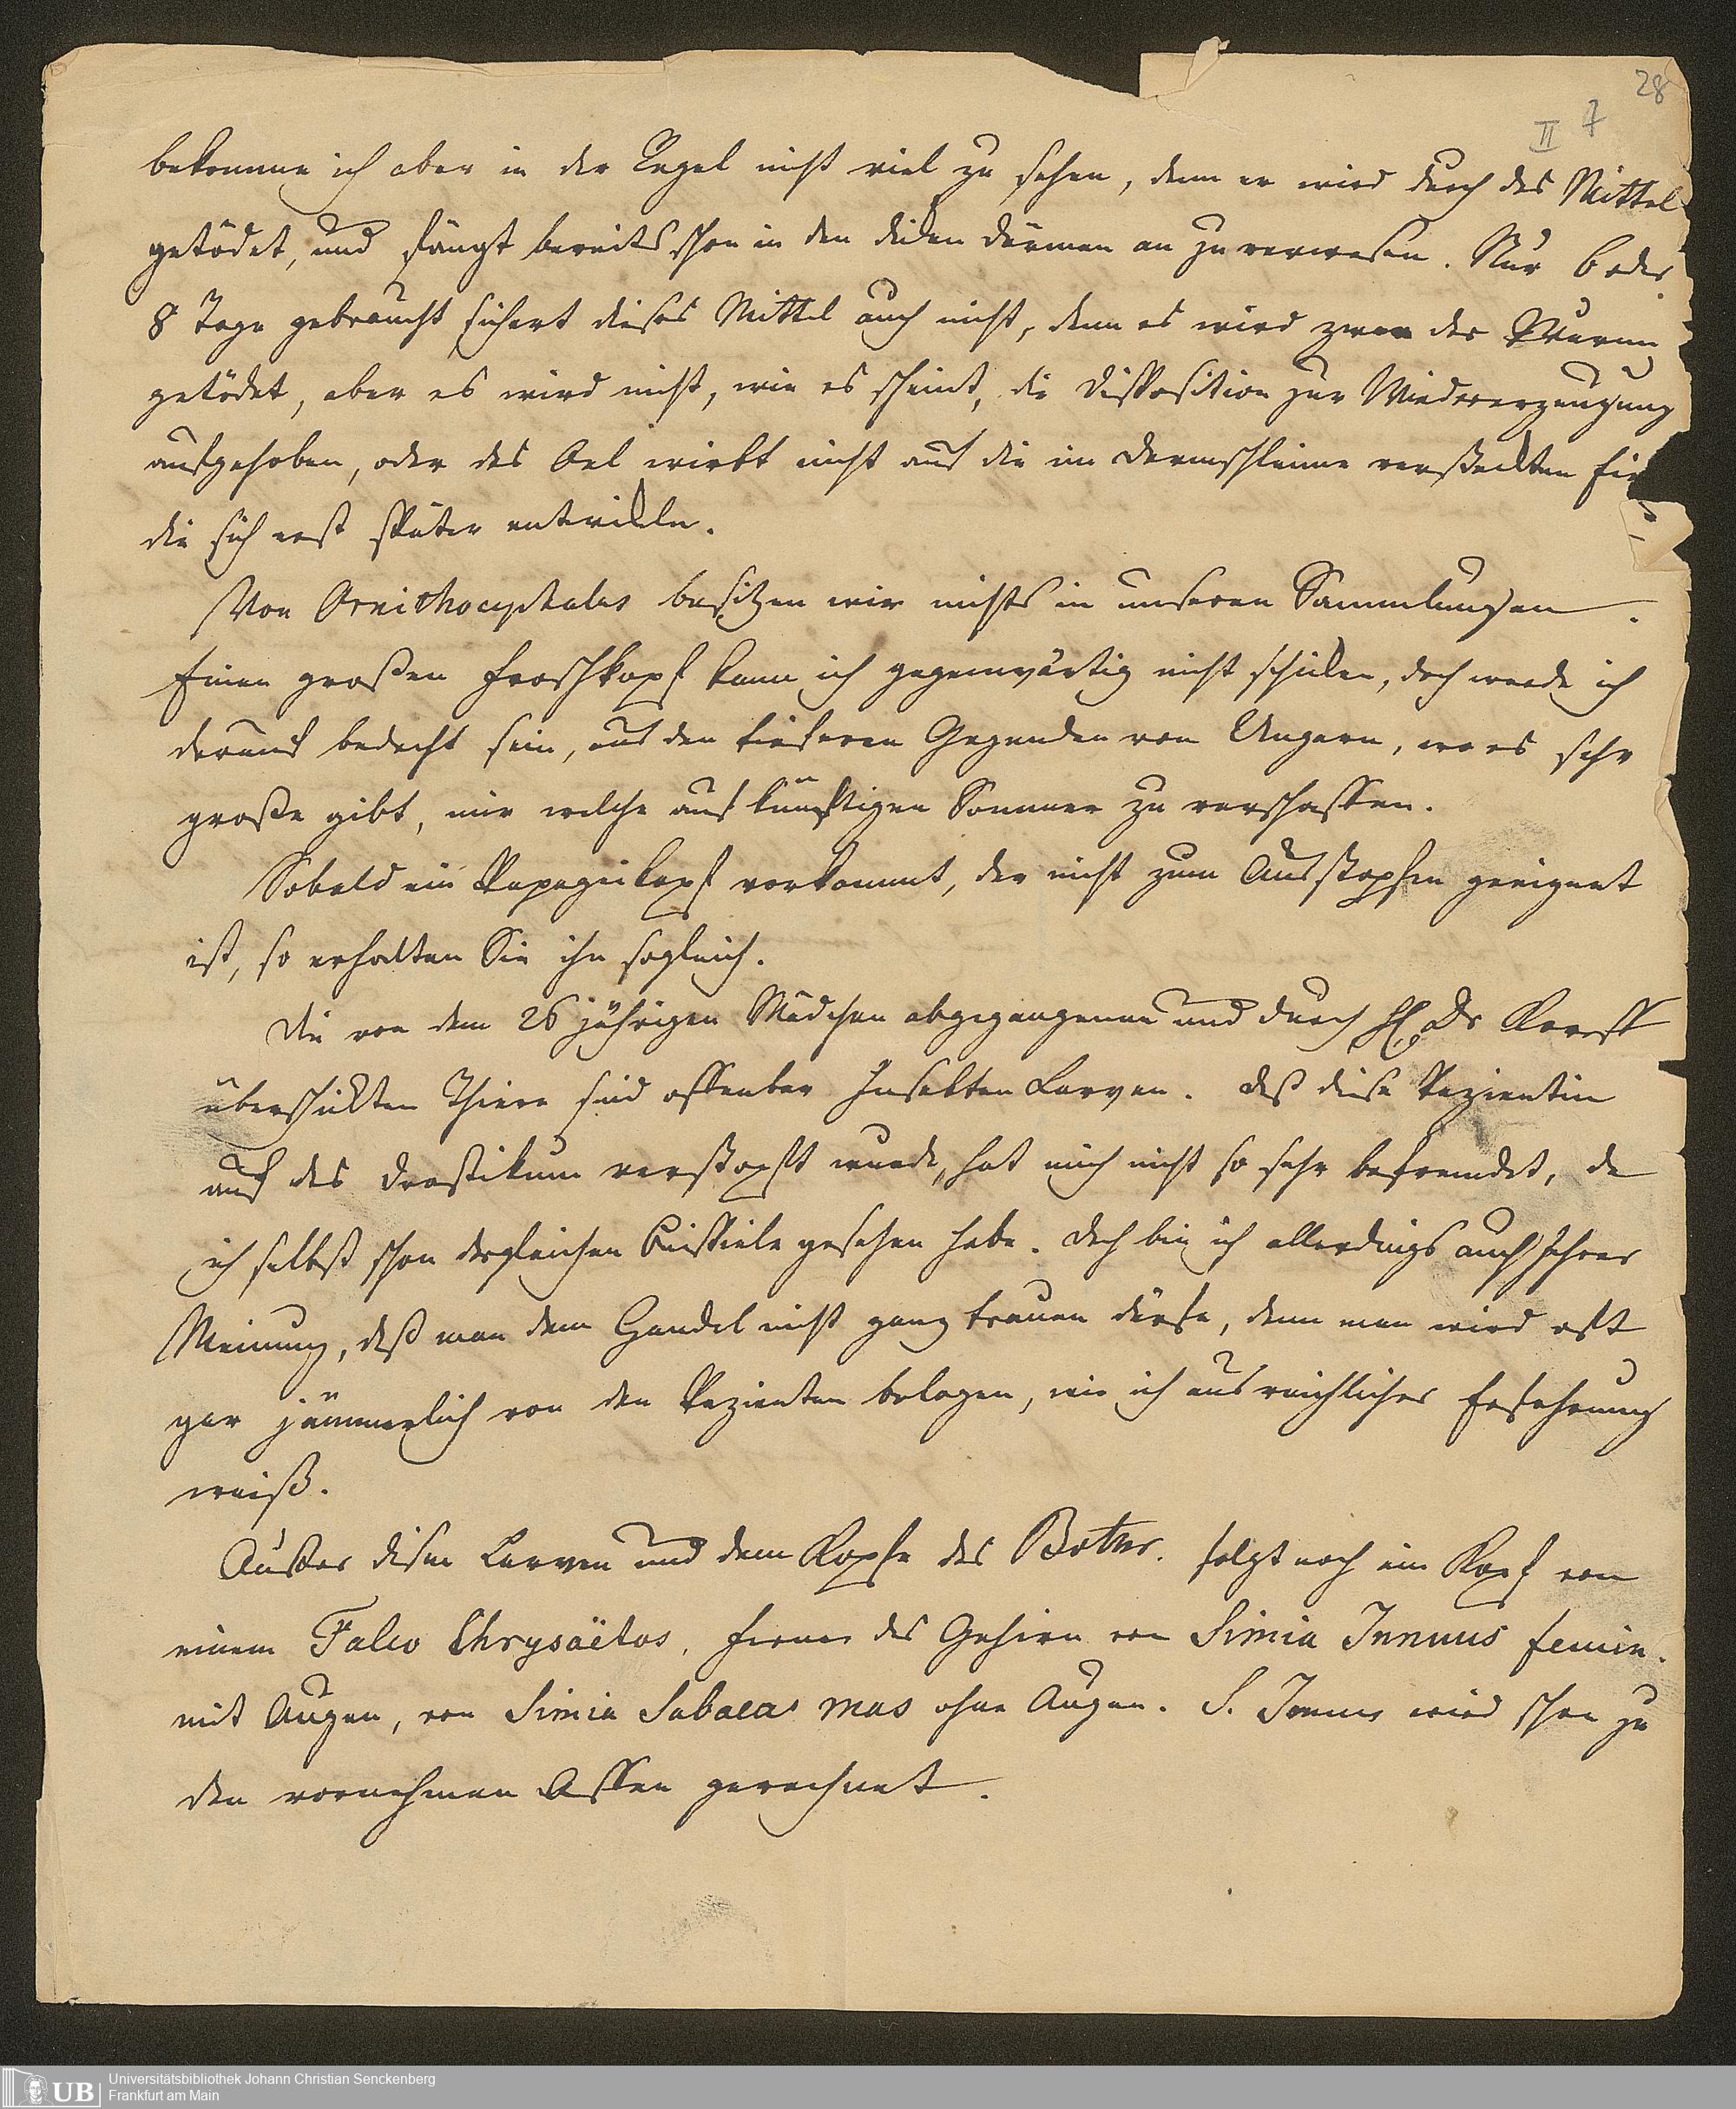 28
II 7
bekomme ich aber in der Regel nicht viel zu sehen, denn er wird durch das Mittel
getödet, und fängt bereits schon in den diken Därmen an zu verwesen. Nur 6 oder
8 Tage gebraucht sichert dieses Mittel auch nicht, denn es wird zwar der Wurm
getödet, aber es wird nicht, wie es scheint, die Disposition zur Wiedererzeugung
aufgehoben, oder das Oel wirkt nicht auf die im Darmschleime verstekten
die sich erst später entwikeln.
Von Ornithocephalus besitzen wir nichts in unseren Sammlungen.
Einen großen Froschkopf kann ich gegenwärtig nicht schiken, doch werde ich
darauf bedacht sein, aus den tieferen Gegenden von Ungarn, wo es sehr
große gibt, mir welche auf künftigen Sommer zu verschaffen.
Sobald ein Papageikopf vorkommt, der nicht zum Ausstopfen geeignet
ist, so erhalten Sie ihn sogleich.
Die von dem 26 jährigen Mädchen abgegangenen und durch H. Dr
überschikten Thiere sind offenbar Insekten Larven. Daß diese Pazientin
auf das Drastikum verstopft wurde, hat mich nicht so sehr befremdet, da
ich selbst schon dergleichen Beispiele gesehen habe. Doch bin ich allerdings auch Ihrer
Meinung, daß man dem Handel nicht ganz trauen dürfe, denn man wird oft
gar jämmerlich von den Pazienten belogen, wie ich aus reichlicher Erfahrung
weiß.
Außer diesen Larven und dem Kopfe des Bothr. folgt noch ein Kopf von
einem Falco Chrysaëtos, ferner das Gehirn von Simia Innuus femin.
mit Augen, von Simia Sabaea mas ohne Augen. S. Innuus wird schon zu
den vornehmen Affen gerechnet.
UB Universitätsbibliothek Johann Christian Senckenberg
Frankfurt am Main